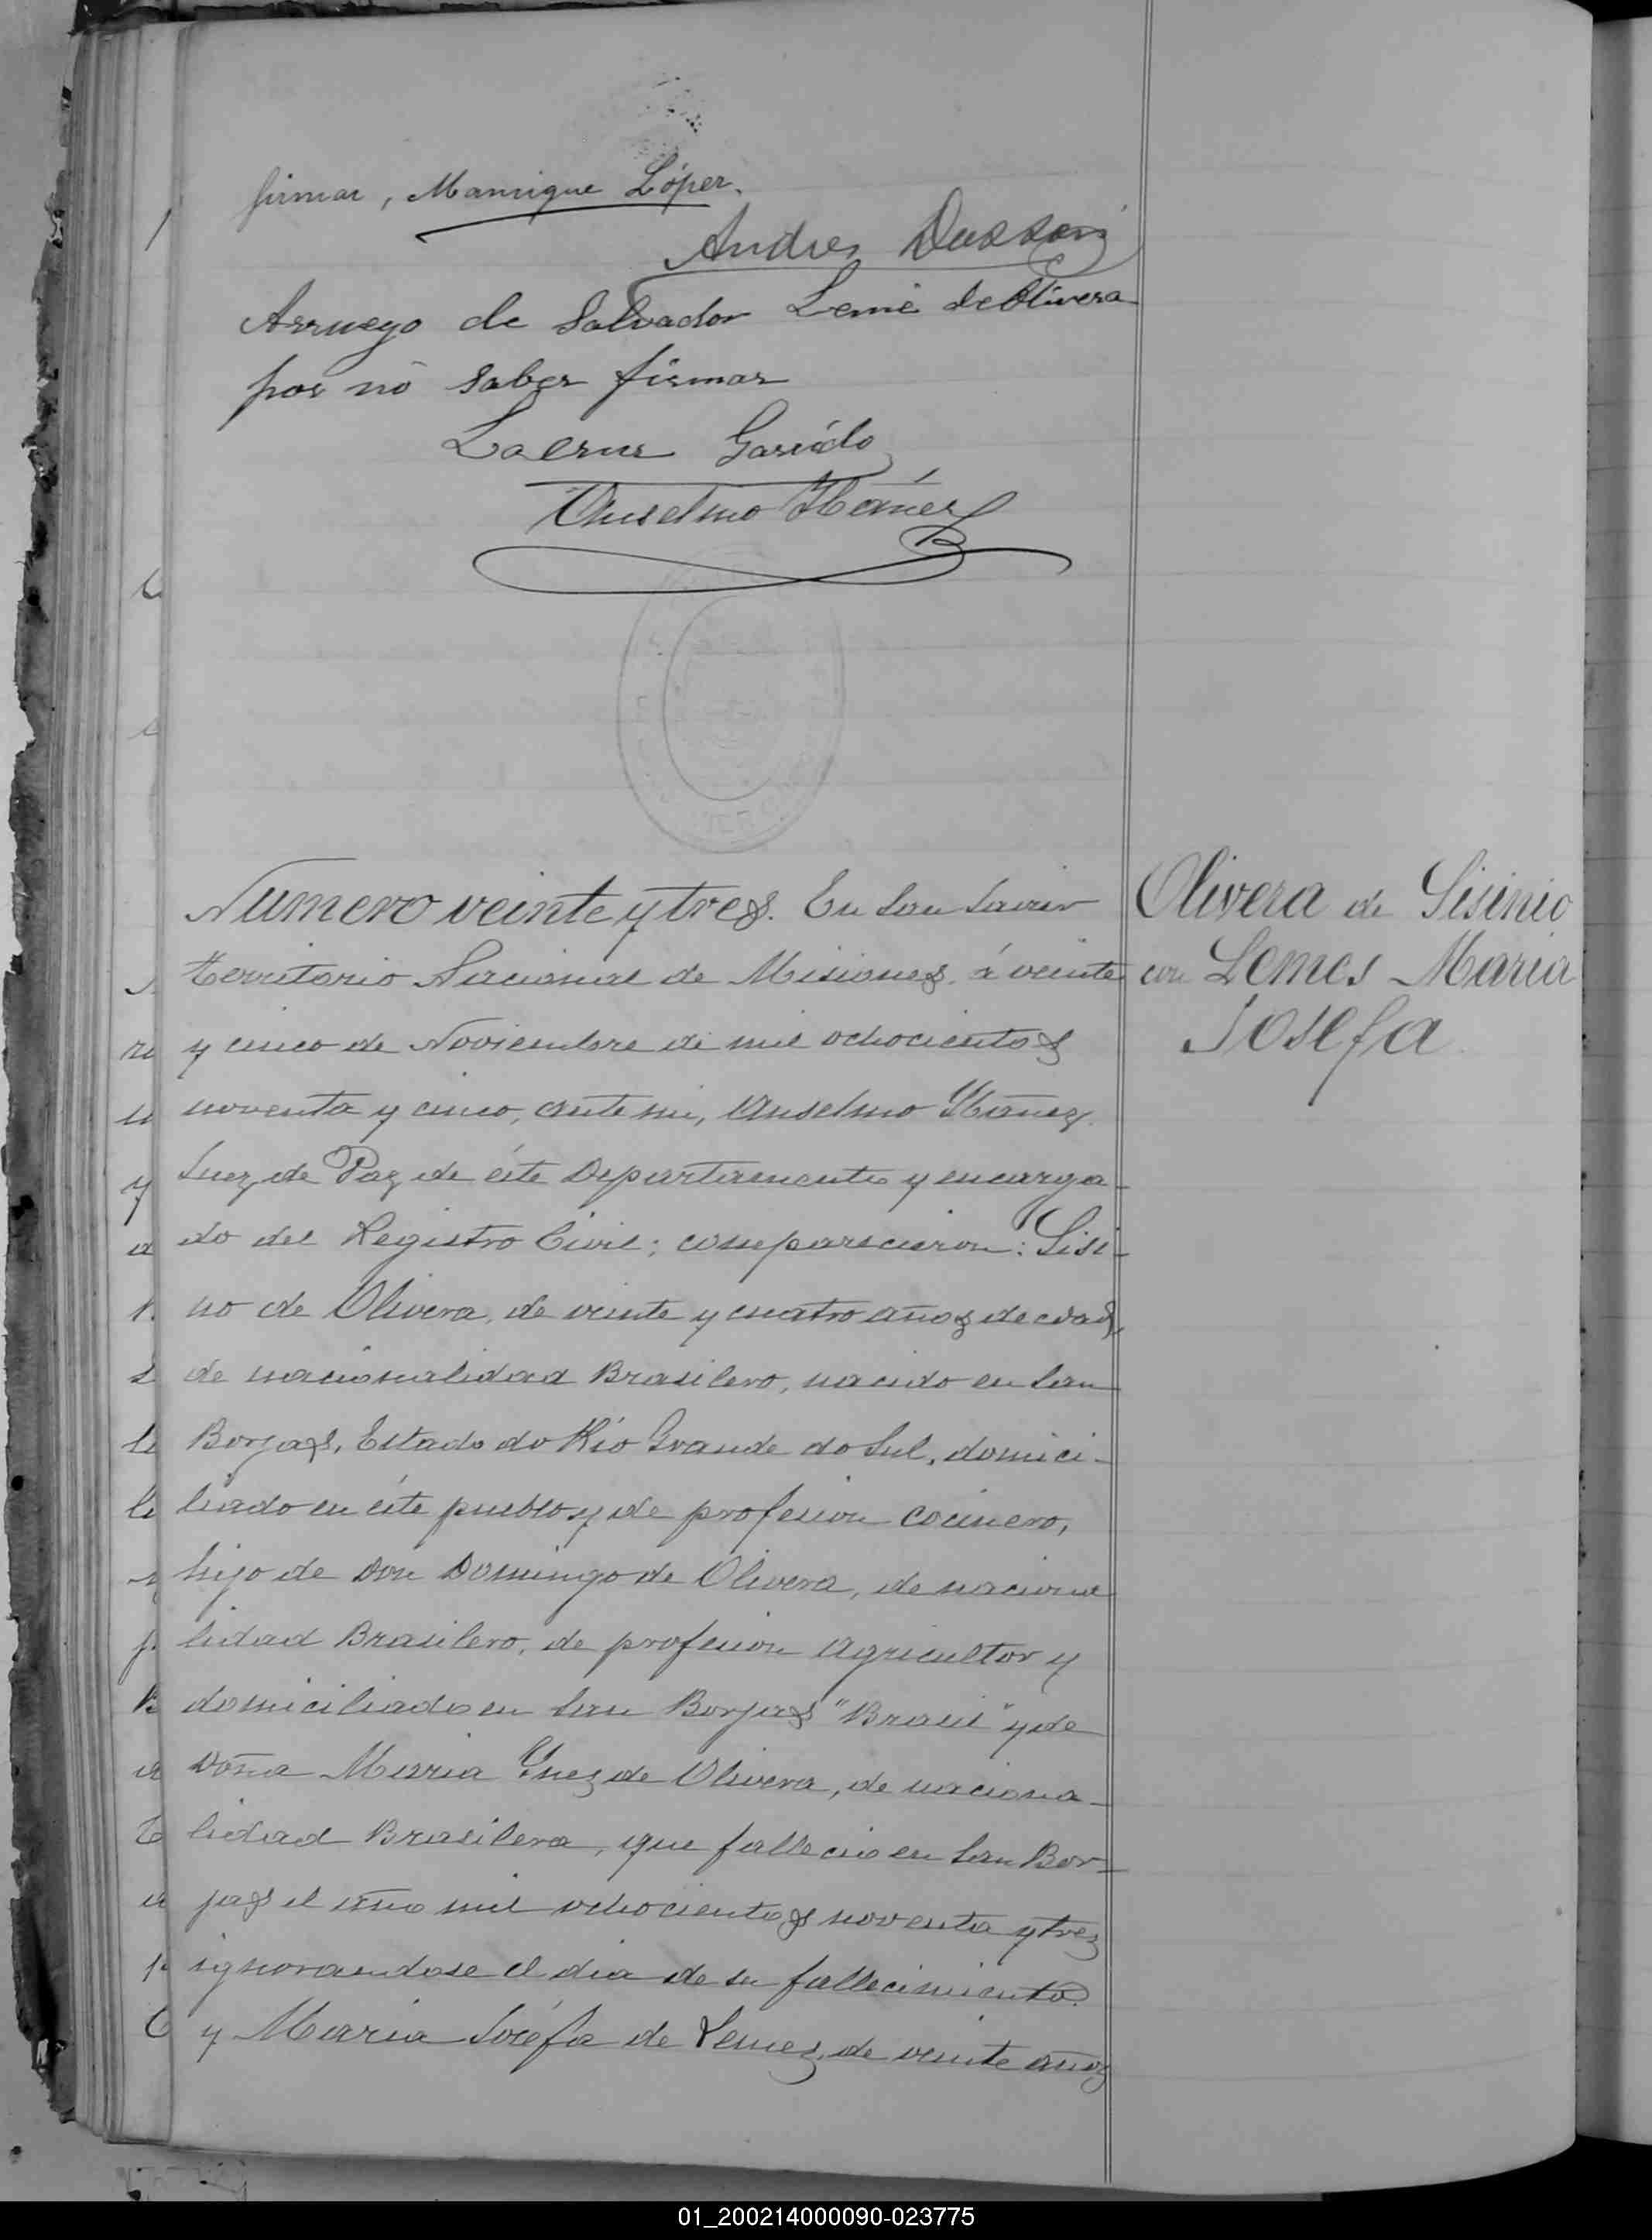 firmar, Manrique López.
Andres
Arruego de Salvador Leme de Olivera
por no saber firmar
Lacruz Garrido
Anselmo Ibáñez
Numero veinte y tres. En San Javier
Territorio Nacional de Misiones, á veinte
y cinco de Noviembre de mil ochocientos
noventa y cinco, ante mi, Anselmo Ybañez
Juez de Paz de éste Departamento y encarga-
do del Registro Civil; comparecieron: Sisi-
no de Olivera, de veinte y cuatro años de edad,
de nacionalidad Brasilero, nacido en San
Borjas, Estado do Rio Grande do Sul, domici-
liado en éste pueblo y de profesion cocinero,
hijo de Don Domingo de Olivera, de naciona
lidad Brasilero, de profesion agricultor y
domiciliado en San Borjas "Brasil" y de
Doña Maria Ynez de Olivera, de naciona-
lidad Brasilera, que fallecio en San Bor-
jas el año mil ochocientos noventa y trez
ignorandose el dia de su fallecimiento.
y Maria Joséfa de Lemez, de veinte años
Olivera de Sisinio
con Lemes Maria
Josefa
01_200214000090-023775